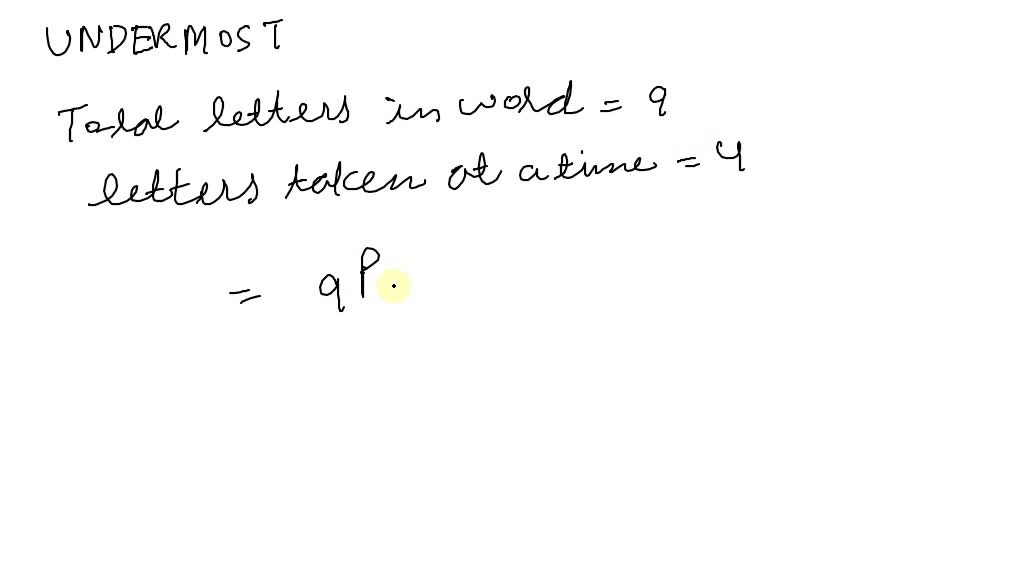 UNDERMOST
Total letters in word = 9
letters taken at a time = 4
= 9P